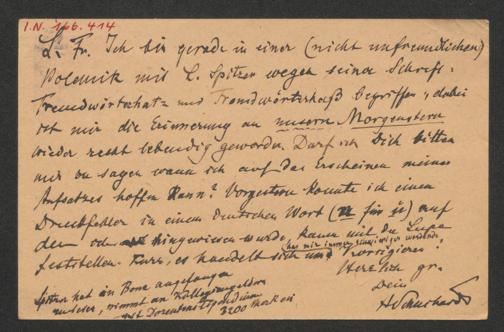 I.N. 166.414
L. Fr. Ich bin gerade in einer (nicht unfreundlichen)
Polemik mit L. Spitzer wegen seiner Schrift:
Fremdwörterhatz und Fremdvölkerhaß begriffen; dabei
ist mir die Erinnerung an unsern Morgenstern
wieder recht lebendig geworden. Darf ich Dich bitten
mir zu sagen wann ich auf das Erscheinen meines
Aufsatzes hoffen kann? Vorgestern konnte ich einen
Druckfehler in einem deutschen Wort (n für ü) auf
den ich hingewiesen wurde, kaum mit der Lupe
feststellen. Kurz, es handelt sich um
Herzlich gr.
Dein
HSchuchardt
Spitzer hat in Bonn angefangen
zu lesen, nimmt an Kollegiengeldern
mit Dozentenstipendium
3200 Mark ein.